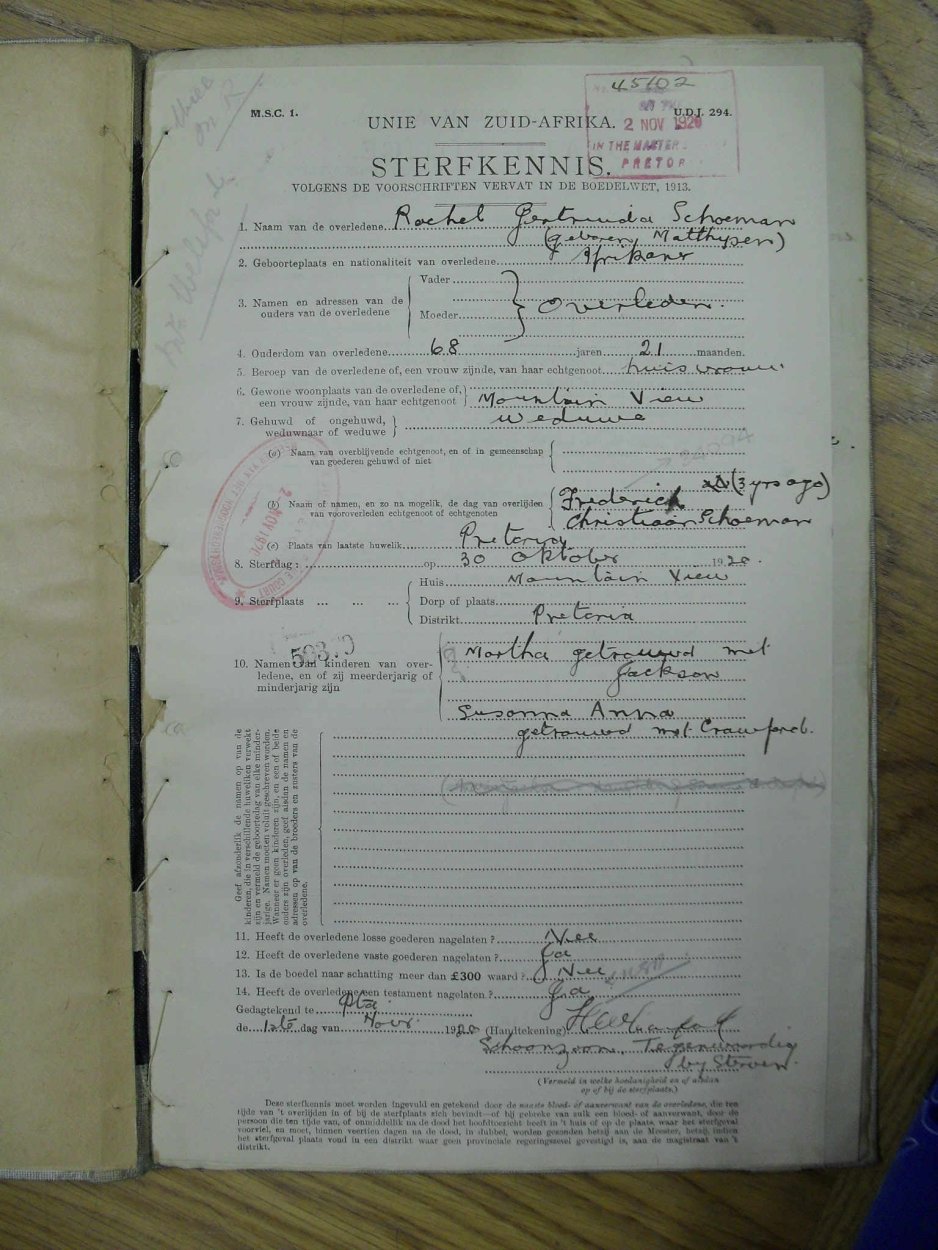 45102
M.S.C. 1.
U.D.J. 294.
2 NOV 1920
IN THE MASTER
PRETOR
UNIE VAN ZUID-AFRIKA.
STERFKENNIS.
VOLGENS DE VOORSCHRIFTEN VERVAT IN DE BOEDELWET, 1913.
1. Naam van de overledene Rachel Gertruida Schoeman
(geboren Matthysen)
2. Geboorteplaats en nationaliteit van overledene Afrikaner
3. Namen en adressen van de ouders van de overledene
Vader
Moeder
Overleden.
4. Ouderdom van overledene 68 jaren 21 maanden.
5. Beroep van de overledene of, een vrouw zijnde, van haar echtgenoot huisvrouw
6. Gewone woonplaats van de overledene of,
een vrouw zijnde, van haar echtgenoot Mountain View
7. Gehuwd of ongehuwd,
weduwnaar of weduwe weduwe
(a) Naam van overblijvende echtgenoot, en of in gemeenschap
van goederen gehuwd of niet
(b) Naam of namen, en zo na mogelik, de dag van overlijden
van vooroverleden echtgenoot of echtgenoten
Frederick (3 yrs ago)
Christiaan Schoeman
(c) Plaats van laatste huwelik Pretoria
8. Sterfdag: op 30 Oktober 1920.
9. Sterfplaats ... ... ...
Huis Mountain View
Dorp of plaats
Distrikt Pretoria
10. Namen van kinderen van over-
ledene, en of zij meerderjarig of
minderjarig zijn
Martha getrouwd met
Jackson
Susanna Anna
getrouwd met Crawford.
Geef afzonderlik de namen op van de
kinderen, die in verschillende huweliken verwekt
zijn en vermeld de geboortedag van elke minder-
jarige. Namen moeten voluit geschreven worden.
Wanneer er geen kinderen zijn, en een of beide
ouders zijn overleden, geef alsdan de namen en
adressen op van de broeders en zusters van de
overledene.
11. Heeft de overledene losse goederen nagelaten? Nee
12. Heeft de overledene vaste goederen nagelaten? Ja
13. Is de boedel naar schatting meer dan £300 waard? Nee
14. Heeft de overledene een testament nagelaten? Ja
Gedagtekend te Pta
de 1ste dag van Novr 1920 (Handtekening)
Schoonzoon, Tegenwoordig
by Sterven.
(Vermeld in welke hoedanigheid en of aldan
op of bij de sterfplaats.)
Deze sterfkennis moet worden ingevuld en getekend door de naaste bloed- of aanverwant van de overledene, die ten
tijde van 't overlijden in of bij de sterfplaats zich bevindt—of bij gebreke van zulk een bloed- of aanverwant, door de
persoon die ten tijde van, of onmiddellik na de dood het hoofdtoezicht heeft in 't huis of op de plaats, waar het sterfgeval
voorviel, en moet, binnen veertien dagen na de dood, in dubbel, worden gezonden hetzij aan de Meester, hetzij, indien
het sterfgeval plaats vond in een distrikt waar geen provinciale regeringszetel gevestigd is, aan de magistraat van 't
distrikt.